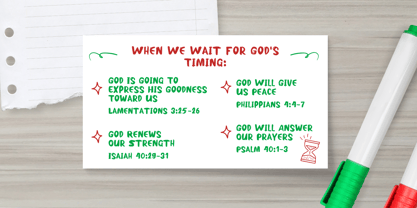 WHEN WE WAIT FOR GOD'S
TIMING:
GOD IS GOING TO
EXPRESS HIS GOODNESS
TOWARD US
LAMENTATIONS 3:25-26
GOD RENEWS
OUR STRENGTH
ISAIAH 40:29-31
GOD WILL GIVE
US PEACE
PHILIPPIANS 4:4-7
GOD WILL ANSWER
OUR PRAYERS
PSALM 40:1-3